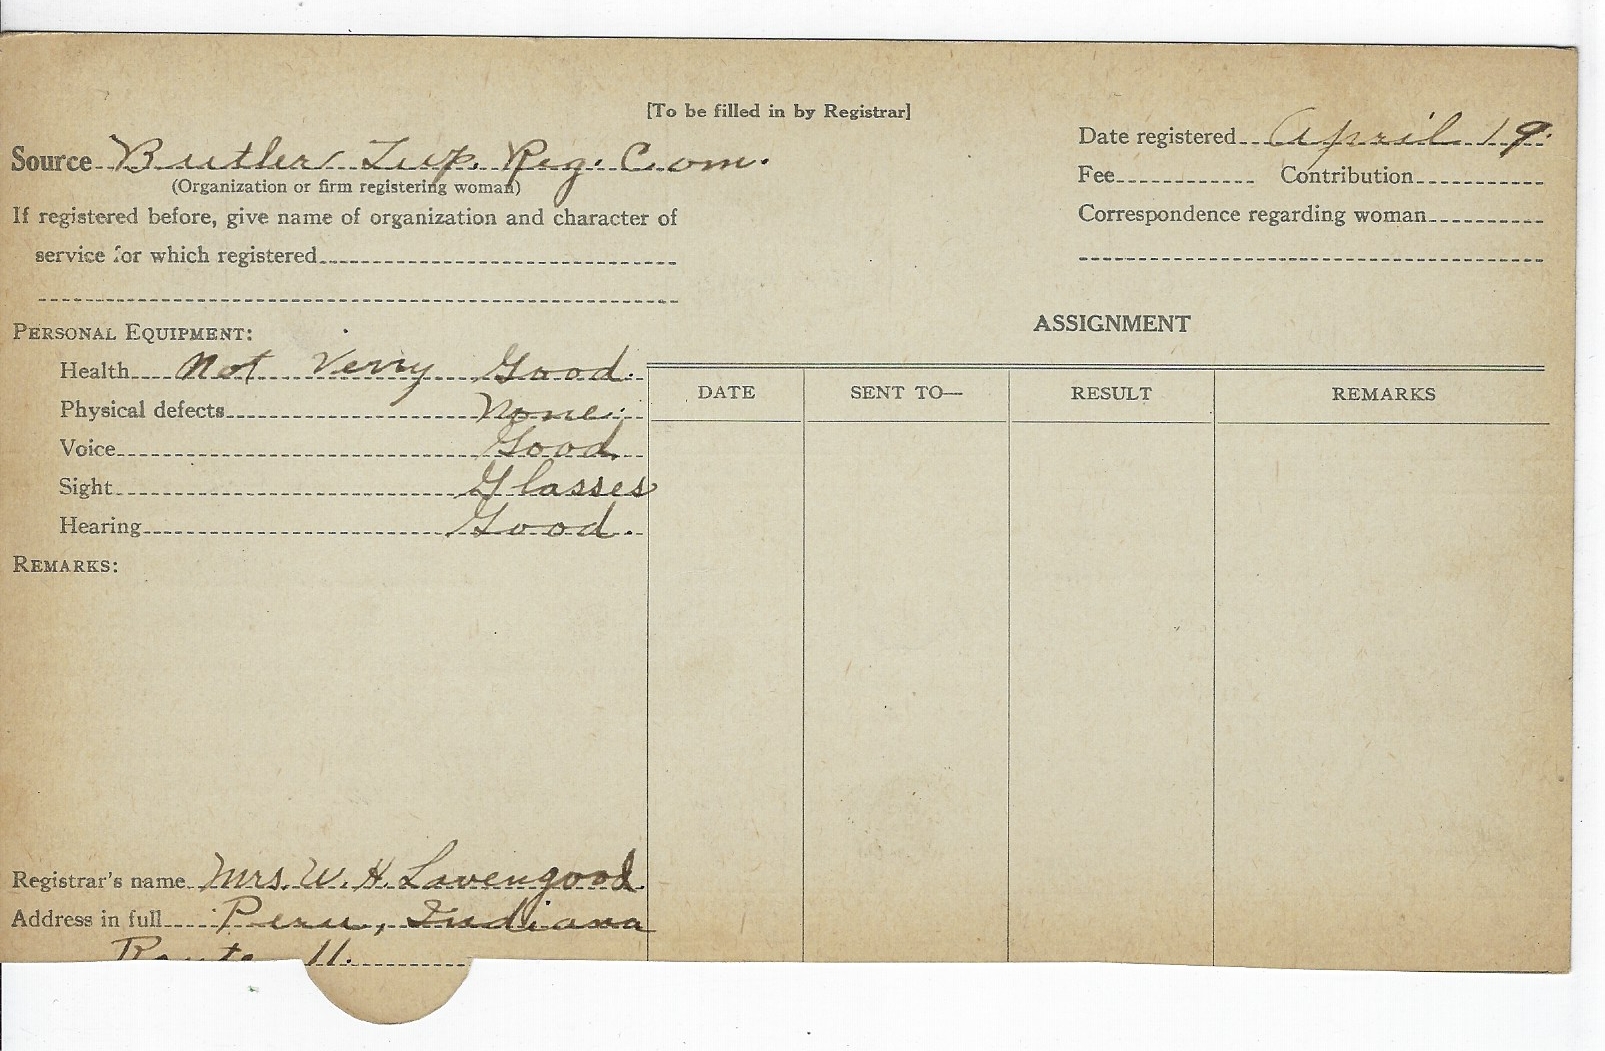 [To be filled in by Registrar]
Source Butler Twp. Reg. Com.
(Organization or firm registering woman)
If registered before, give name of organization and character of
service for which registered
Date registered April 19.
Fee Contribution
Correspondence regarding woman
PERSONAL EQUIPMENT:
Health Not Verry Good.
Physical defects None.
Voice Good.
Sight Glasses
Hearing Good.
REMARKS:
ASSIGNMENT
DATE SENT TO— RESULT REMARKS
Registrar's name Mrs. W. H. Lavengood.
Address in full Peru, Indiana
Route 11.